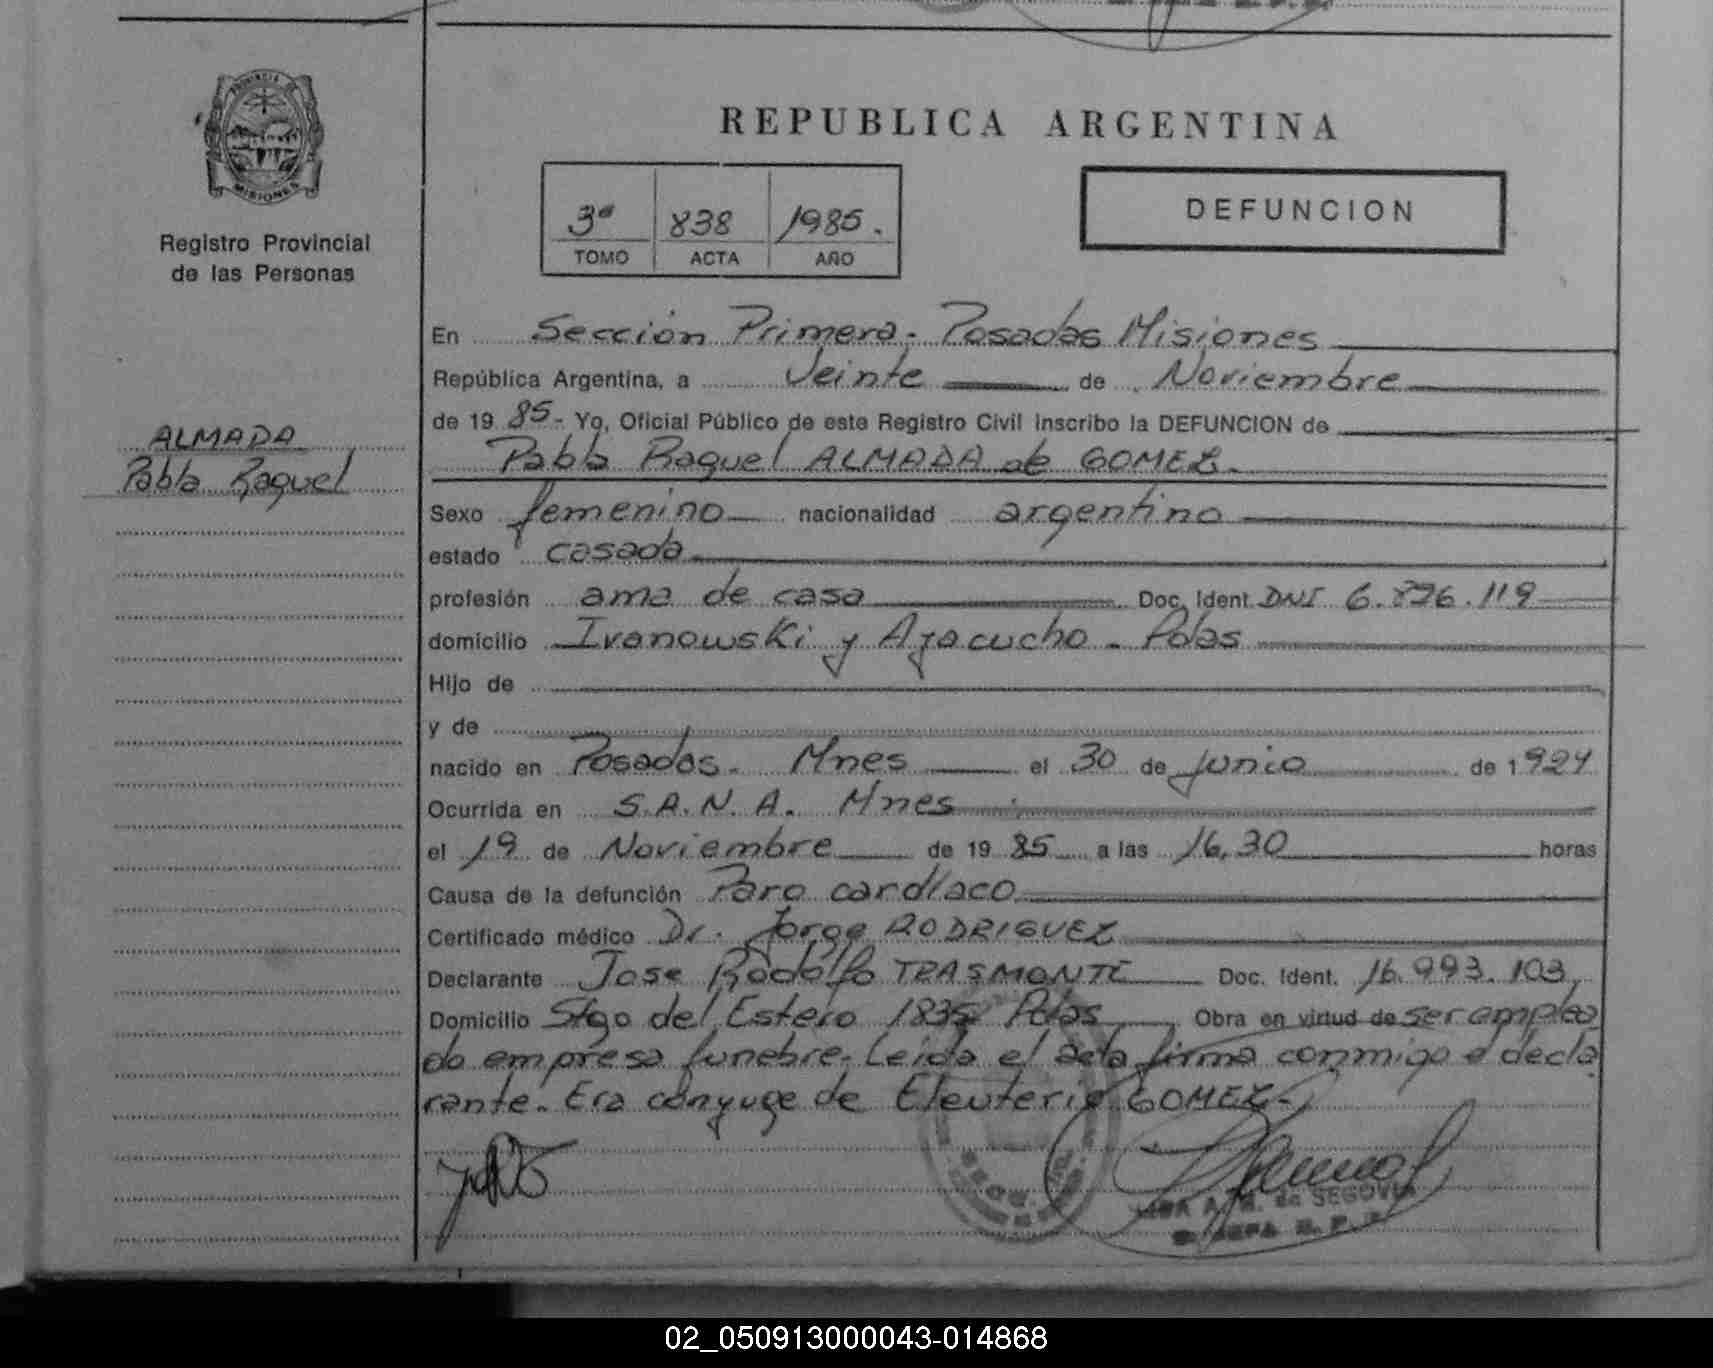 PROVINCIA DE
MISIONES
Registro Provincial
de las Personas
ALMADA
Pabla Raquel
REPUBLICA ARGENTINA
3º 838 1985.
TOMO ACTA AÑO
DEFUNCION
En Sección Primera - Posadas Misiones
República Argentina, a Veinte de Noviembre
de 19 85 - Yo, Oficial Público de este Registro Civil inscribo la DEFUNCION de
Pabla Raquel ALMADA de GOMEZ.
Sexo femenino nacionalidad argentina
estado casada
profesión ama de casa Doc. Ident. DNI 6.826.119
domicilio Ivanowski y Ayacucho - Pdas
Hijo de
y de
nacido en Posadas - Mnes el 30 de junio de 1924
Ocurrida en S.A.N.A. Mnes
el 19 de Noviembre de 19 85 a las 16,30 horas
Causa de la defunción Paro cardíaco
Certificado médico Dr. Jorge RODRIGUEZ
Declarante Jose Rodolfo TRASMONTE Doc. Ident. 16.993.103
Domicilio Stgo del Estero 1835 Pdas Obra en virtud de ser emplea
do empresa funebre. Leida el acta firma conmigo el decla
rante. Era cónyuge de Eleuterio GOMEZ -
de SEGOVIA
02_050913000043-014868